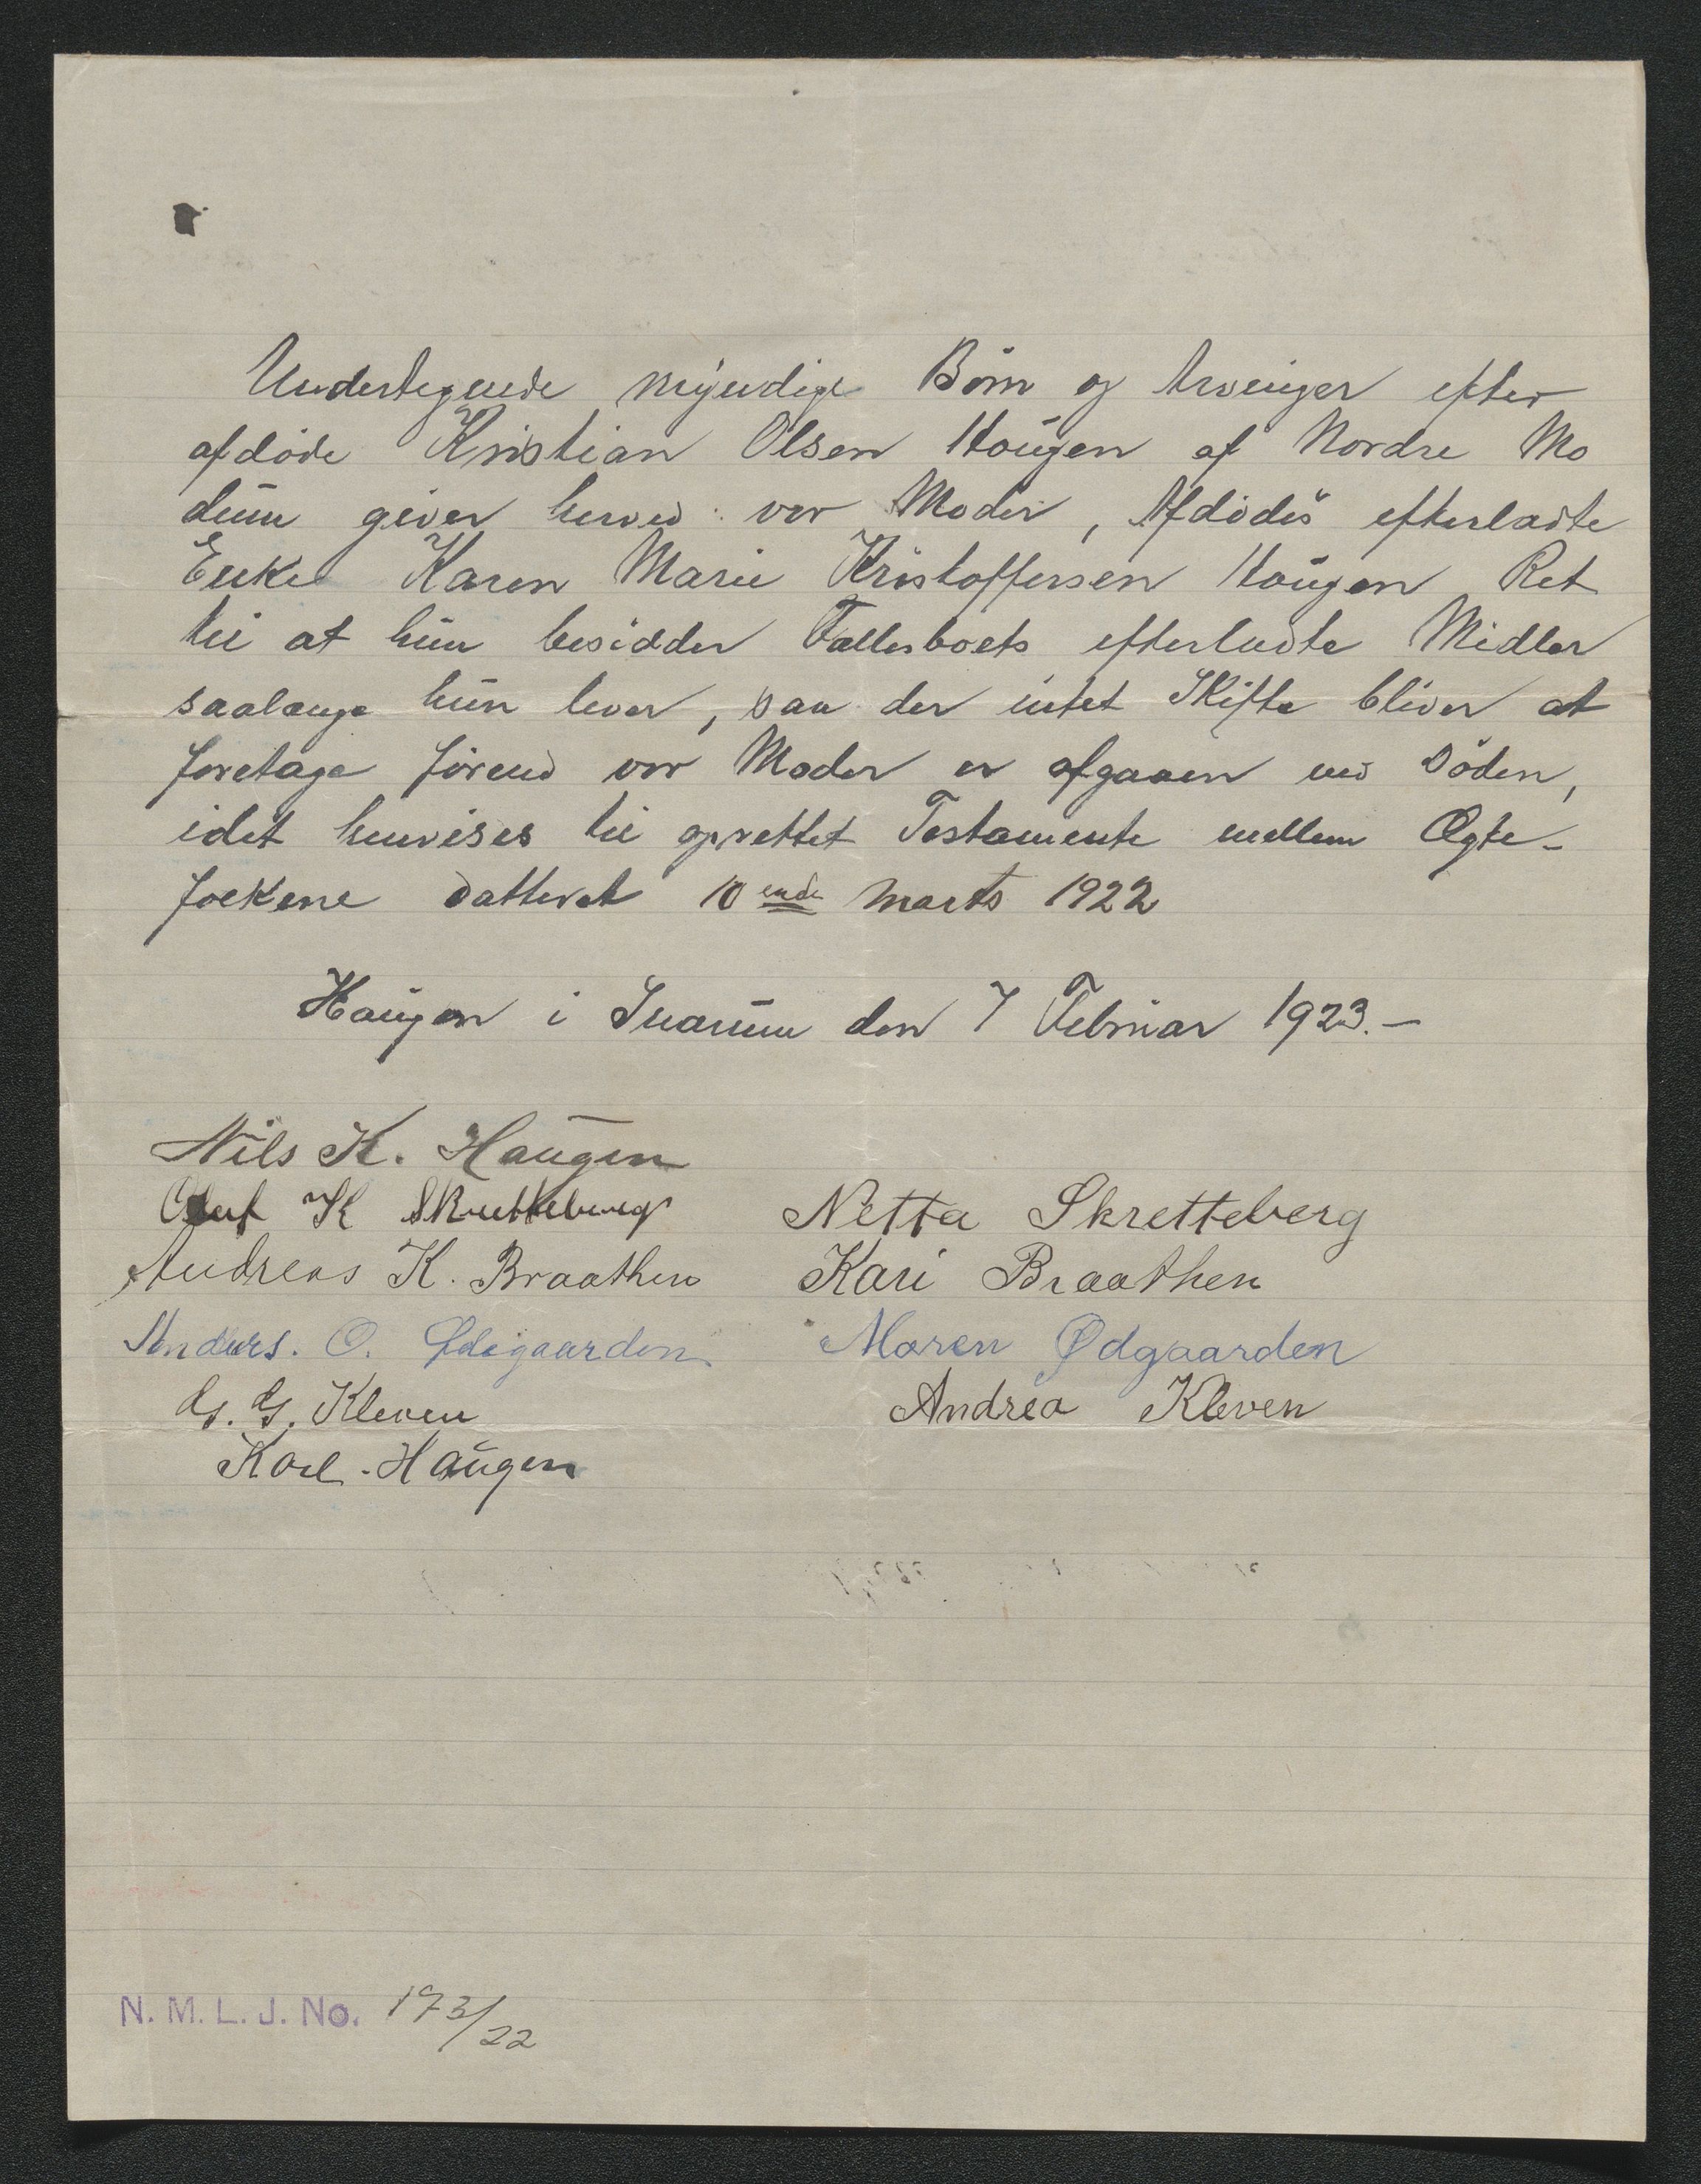 Undertegnede myndige Börn og Arvinger efter
afdöde Kristian Olsen Haugen af Nordre Mo
dum giver herved vor Moder, Afdödes efterladte
Enke Karen Marie Kristoffersen Haugen Ret
til at hun besidder Fællesboets efterladte Midler
saalænge hun lever, saa der intet Skifte bliver at
foretage förend vor Moder er afgaaen ved Döden,
idet henvises til oprettet Testamente mellem Ægte-
folkene datteret 10 ende Marts 1922
Haugen i Snarum den 7 Februar 1923.-
Nils K. Haugen
Oluf K Skretteberg Netta Skretteberg
Andreas K. Braathen Kari Braathen
Anders. O. Ødegaarden Maren Ødgaarden
G. G. Kleven Andrea Kleven
Karl. Haugen
N. M. L. J. No. 173/22